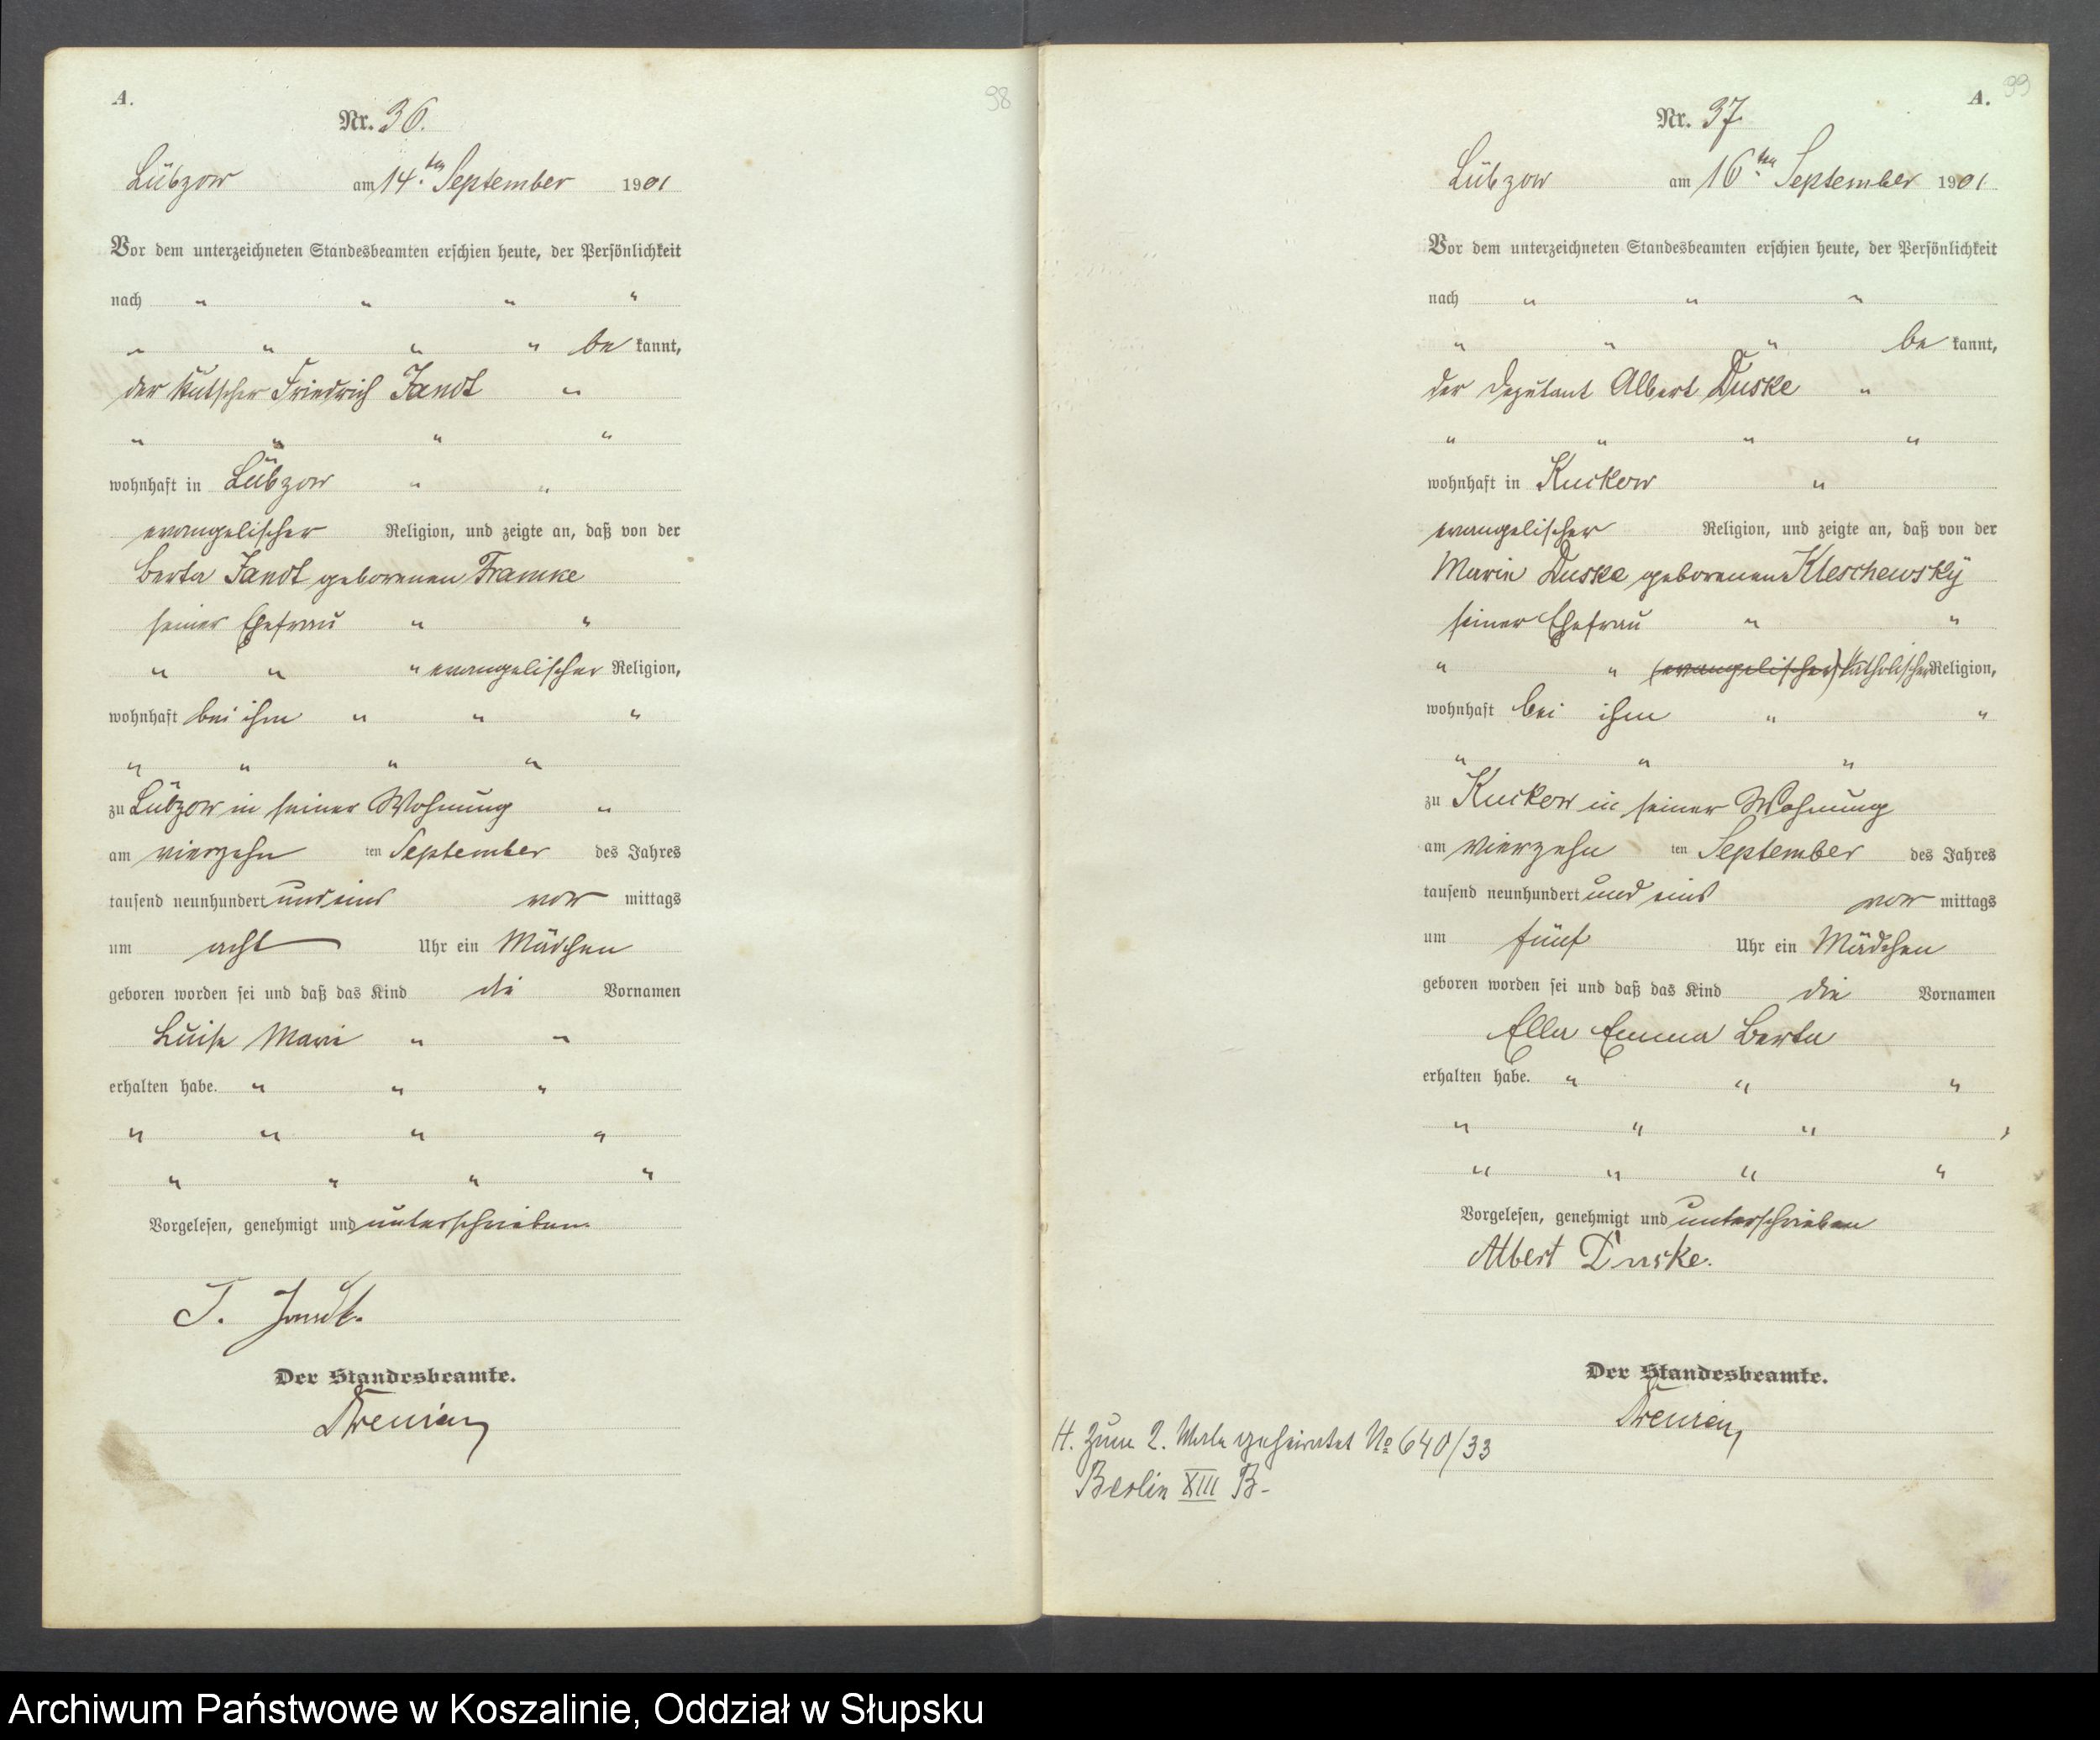 A.
98
Nr. 36.
Lübzow am 14.ten September 1901
Vor dem unterzeichneten Standesbeamten erschien heute, der Persönlichkeit
nach " " " "
" " " " be kannt,
der Kutscher Friedrich Jandt "
" " " "
wohnhaft in Lübzow " "
evangelischer Religion, und zeigte an, daß von der
Berta Jandt geborenen Framke
seiner Ehefrau " "
" " " evangelischer Religion,
wohnhaft bei ihm " " "
" " " "
zu Lübzow in seiner Wohnung "
am vierzehn ten September des Jahres
tausend neunhundert und eins vor mittags
um acht Uhr ein Mädchen
geboren worden sei und daß das Kind die Vornamen
Luise Marie " "
erhalten habe. " " "
" " " "
" " " "
Vorgelesen, genehmigt und unterschrieben
F. Jandt.
Der Standesbeamte.
A.
99
Nr. 37.
Lübzow am 16.ten September 1901.
Vor dem unterzeichneten Standesbeamten erschien heute, der Persönlichkeit
nach " " "
" " " be kannt,
der Deputant Albert Duske "
" " " "
wohnhaft in Kuckow "
evangelischer Religion, und zeigte an, daß von der
Marie Duske geborenen Kleschewsky
seiner Ehefrau " "
" " (evangelischer) katholischer Religion,
wohnhaft bei ihm " "
" " "
zu Kuckow in seiner Wohnung
am vierzehn ten September des Jahres
tausend neunhundert und eins vor mittags
um fünf Uhr ein Mädchen
geboren worden sei und daß das Kind die Vornamen
Ella Emma Berta
erhalten habe. " " "
" " " "
" " " "
Vorgelesen, genehmigt und unterschrieben
Albert Duske.
Der Standesbeamte.
H. Zum 2. Male geheiratet No 640/33
Berlin XIII B-
Archiwum Państwowe w Koszalinie, Oddział w Słupsku